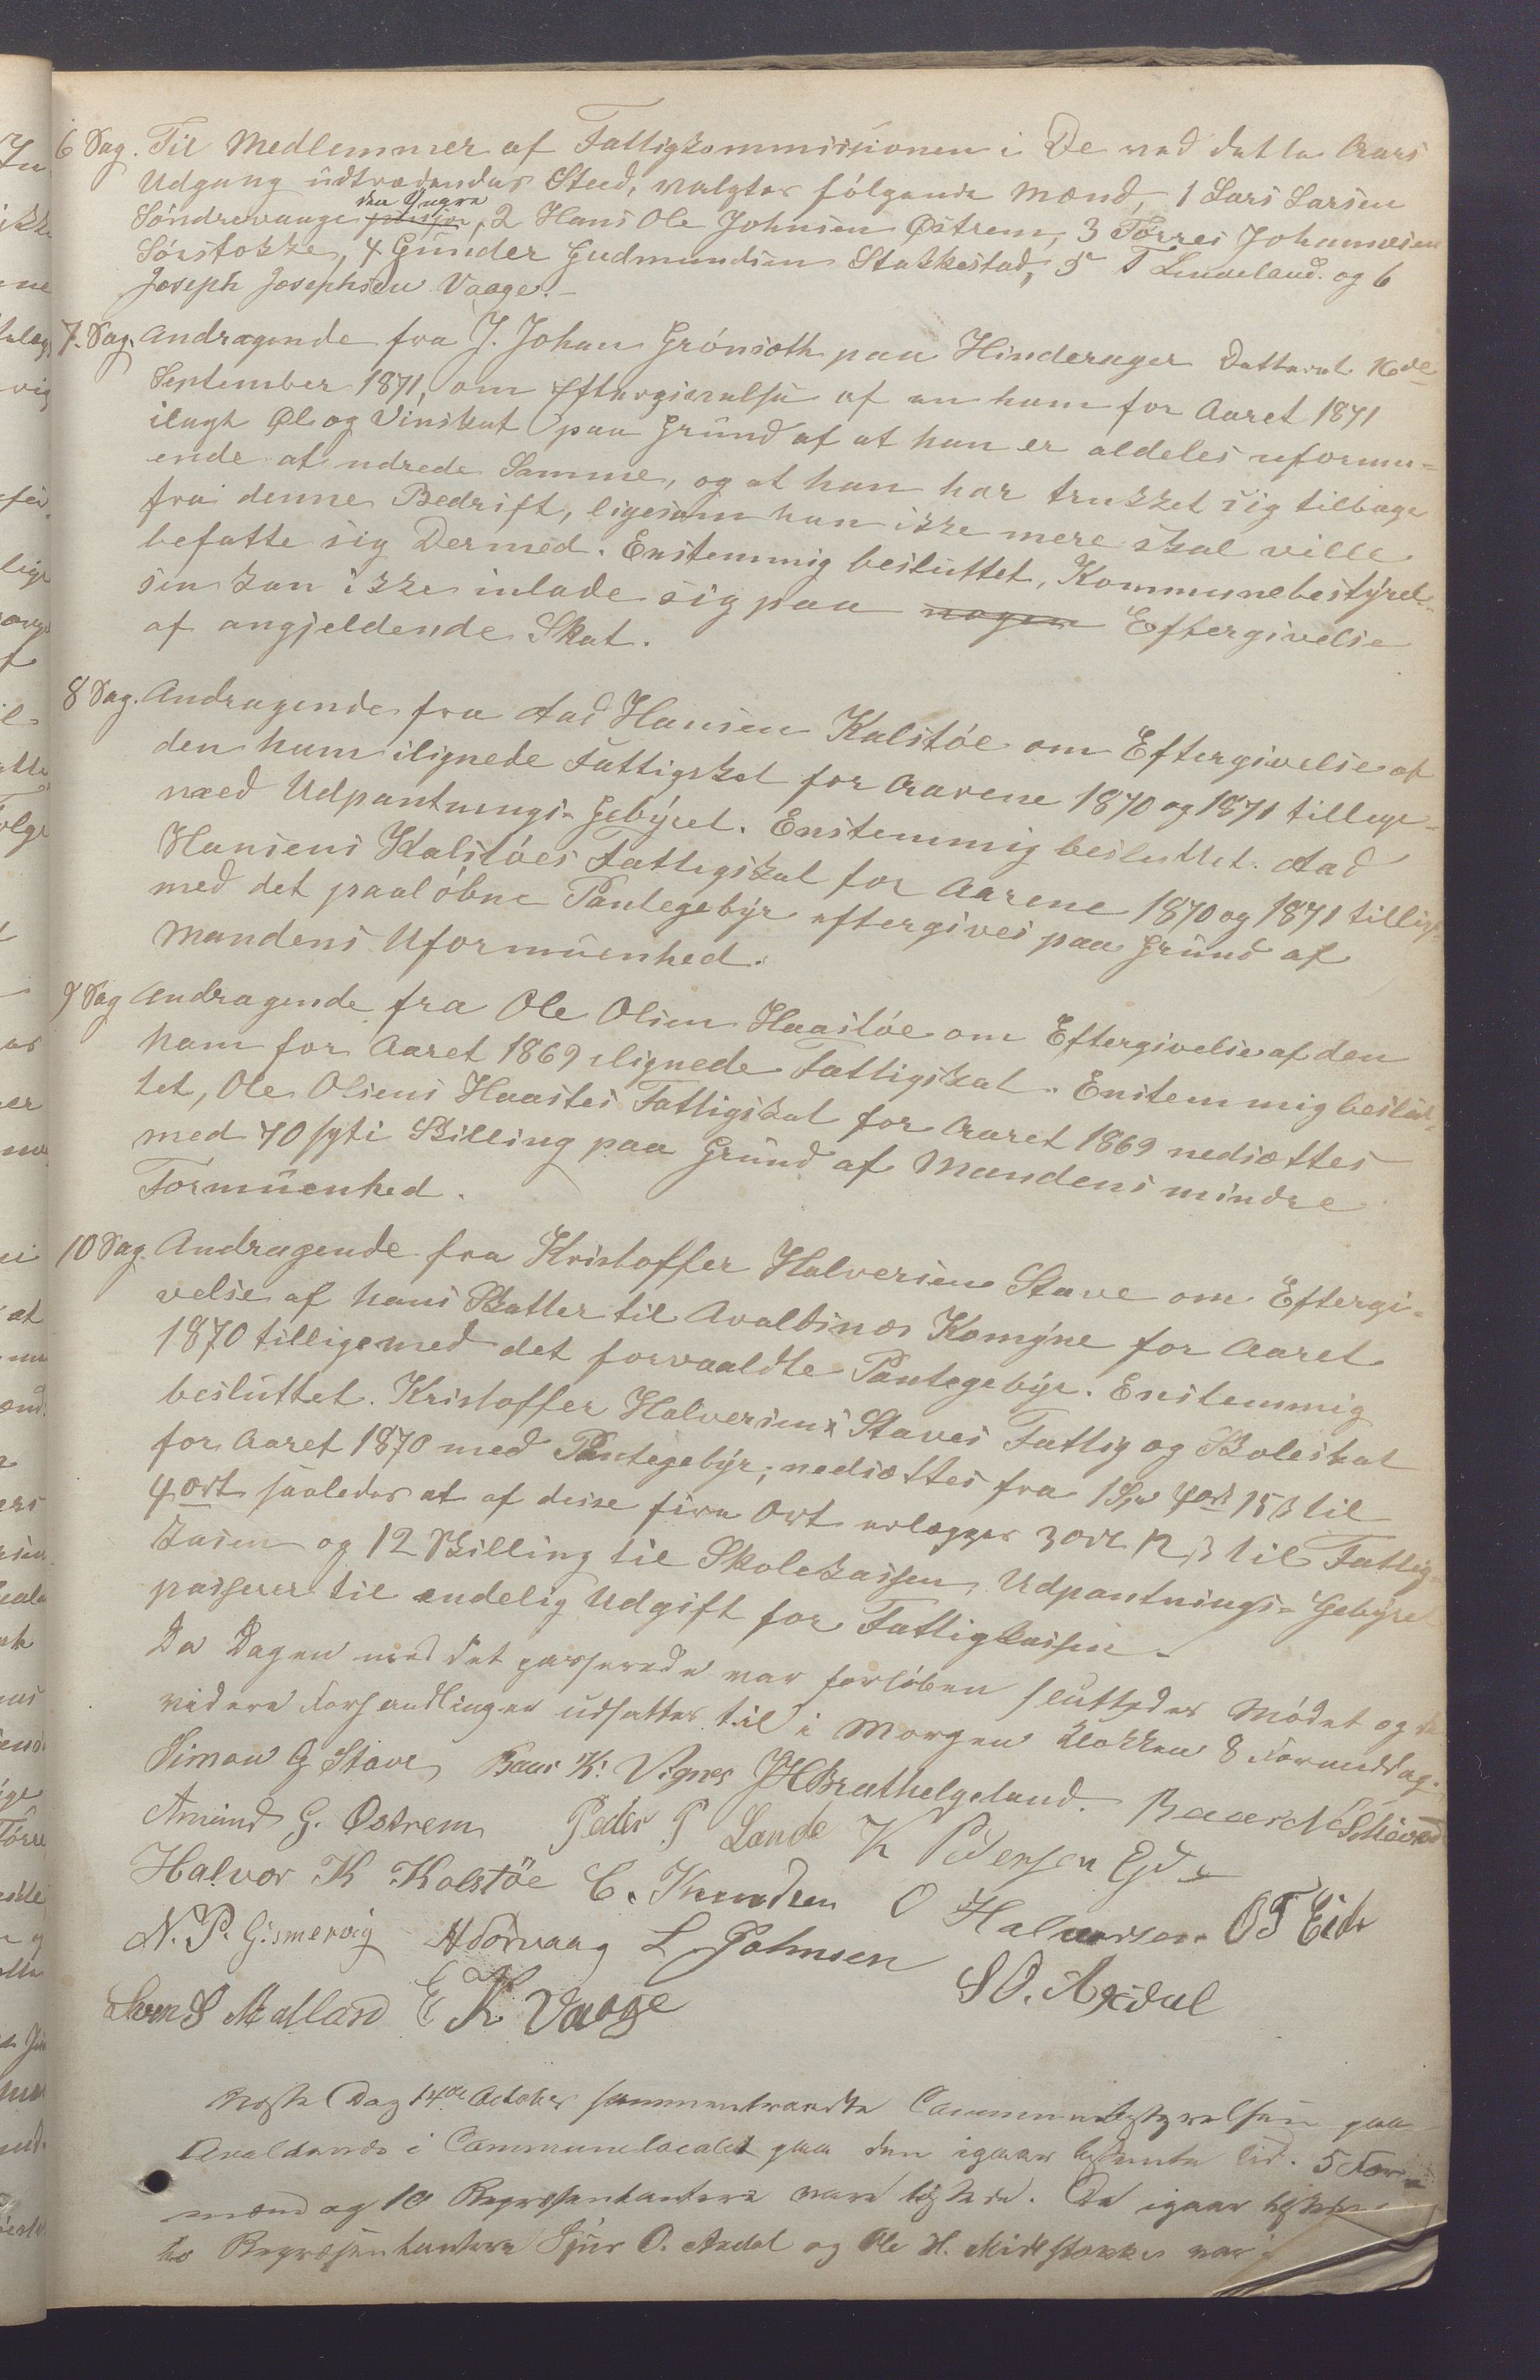 6 Sag. Til Medlemmer af Fattigkommissionen i De ved dette Aars
Udgang udtrædendes Sted, valgtes følgende Mænd, 1 Lars Larsen
den Yngre
Søndrevaage, 2 Hans Ole Johnsen Østrem, 3 Tørres Johannesen
Sørstokke, 4 Gunder Gudmundsen Stakkestad, 5 T Lindeland. og 6
Joseph Josephsen Vaage.-
7. Sag. Andragende fra J. Johan Grønsoth paa Hinderager Datteret 16de
September 1871, om Eftergivelse af en ham for Aaret 1871
ilagt Øl og Vinskat paa Grund af at han er aldeles uformu=
ende at udrede Samme, og at han har trukket sig tilbage
fra denne Bedrift, ligesom han ikke mere skal ville
befatte sig Dermed. Enstemmig besluttet, Kommunebestyrel=
sen kan ikke inlade sig paa nogen Eftergivelse
af angjeldende Skat.
8 Sag. Andragende fra Aad Hansen Kalstøe om Eftergivelse af
den ham ilignede Fattigskat for Aarene 1870 og 1871 tillige=
med Udpantnings-Gebyret. Enstemmig besluttet. Aad
Hansens Kalstøes Fattigskat for Aarene 1870 og 1871 tillige=
med det paaløbne Pantegebyr eftergives paa Grund af
Mandens Uformuenhed.
9 Sag Andragende fra Ole Olsen Haastøe om Eftergivelse af den
ham for Aaret 1869 ilignede Fattigskat. Enstemmig beslut=
tet, Ole Olsens Haastes Fattigskat for Aaret 1869 nedsættes
med 70 syti Skilling paa Grund af Mandens mindre
Formuenhed.
10 Sag. Andragende fra Kristoffer Halversen Stave om Eftergi=
velse af hans Skatter til Avaldsnes Komyne for Aaret
1870 tilligemed det forvaaldte Pantegebyr. Enstemmig
besluttet. Kristoffer Halversens Staves Fattig og Skoleskat
for Aaret 1870 med Pantegebyr; nedsættes fra 1 Spd 4 ort 15 ß til
4 ort saaledes at af disse fire Ort erlægges 3 ort 12 ß til Fattig=
kasen og 12 Skilling til Skolekassen, Udpantnings-Gebyret
passerer til endelig Udgift for Fattigkassen.
Da Dagen med det passerede var forløben sluttedes Mødet og de
videre Forhandlinger udsattes til i Morgen Klokken 8 Formiddag.
Simon G Stave, Baar K. Vignes JH Bruthelgeland. Baard Schievold
Amund G. Østrem Peder P Lande K Pedersen Eide
Halvor K Kalstöe C. Knudsen O Halvorsen OT Eide
N. P. Gismervig H Sörvaag L Johnsen
S O. Axdal
Sven S Mælland E K Vaage
Næste Dag 14de October sammentraadte Communebestyrelsen paa
Avaldsnæs i Communelocalet paa den igaar bestemte Tid. 5 For=
mænd og 10 Repræsentantere vare tilstede. De igaar
to Repræsentantere Sjur O. Axdal og Ole H. Midtstokke var